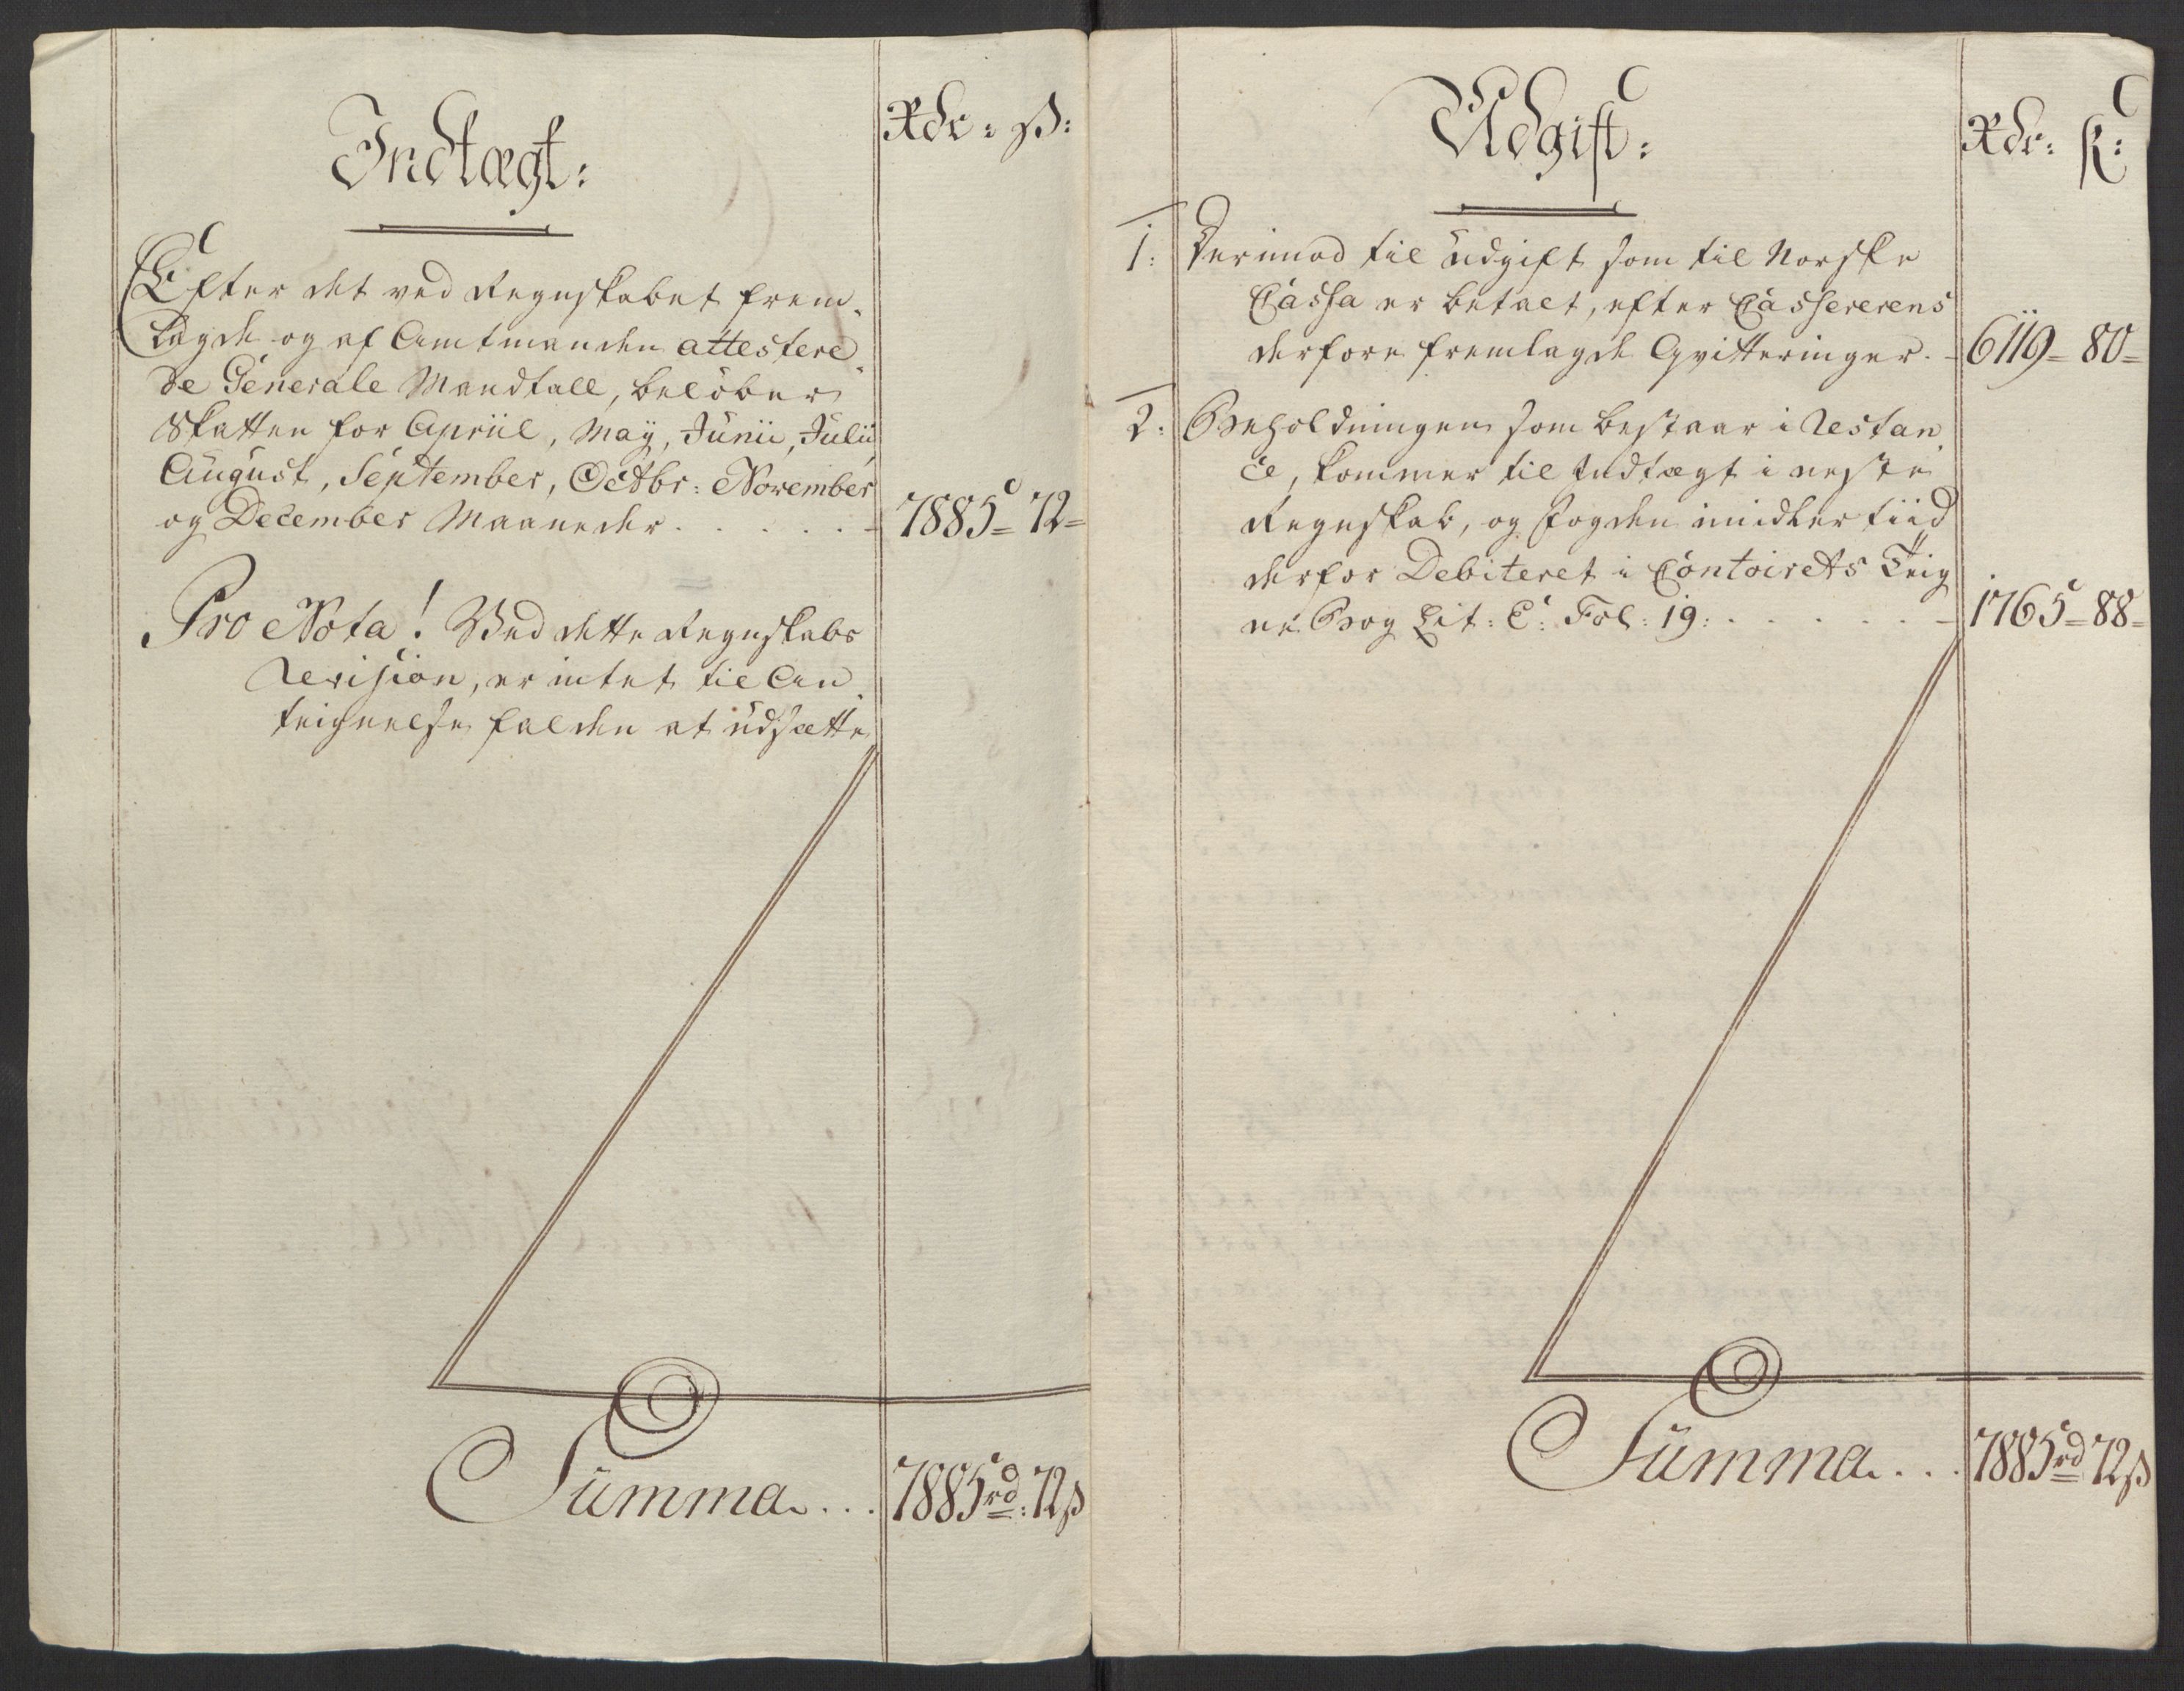 Indtægt:
Rdr: ß:
Efter det ved Regnskabet frem-
lagde og af Amtmanden attestere
de Generale Mandtall, beløber
Skatten for Apriil, May, Junii, Julii,
August, September, Octbr: November
og December Maaneder . . . . . 7885 = 72 =
Pro Nota! Ved dette Regnskabs
Revision, er intet til An
teignelse falden at udsætte
Summa . . . 7885 rd: 72 ß
Udgift:
Rdr: ß:
1: Derimod til udgift som til Norske
Cassa er betalt, efter Cassererens
derfore fremlagde Qvitteringer. - 6119 = 80 =
2: Beholdningen som bestaar i Restan
ce, kommer til Indtægt i neste
Regnskab, og Fogden imidlertiid
derfor Debiteret i Contoirets Teig
ne Bog Lit: C: Fol: 19: . . . . . . 1765 = 88 =
Summa . . . 7885 rd 72 ß